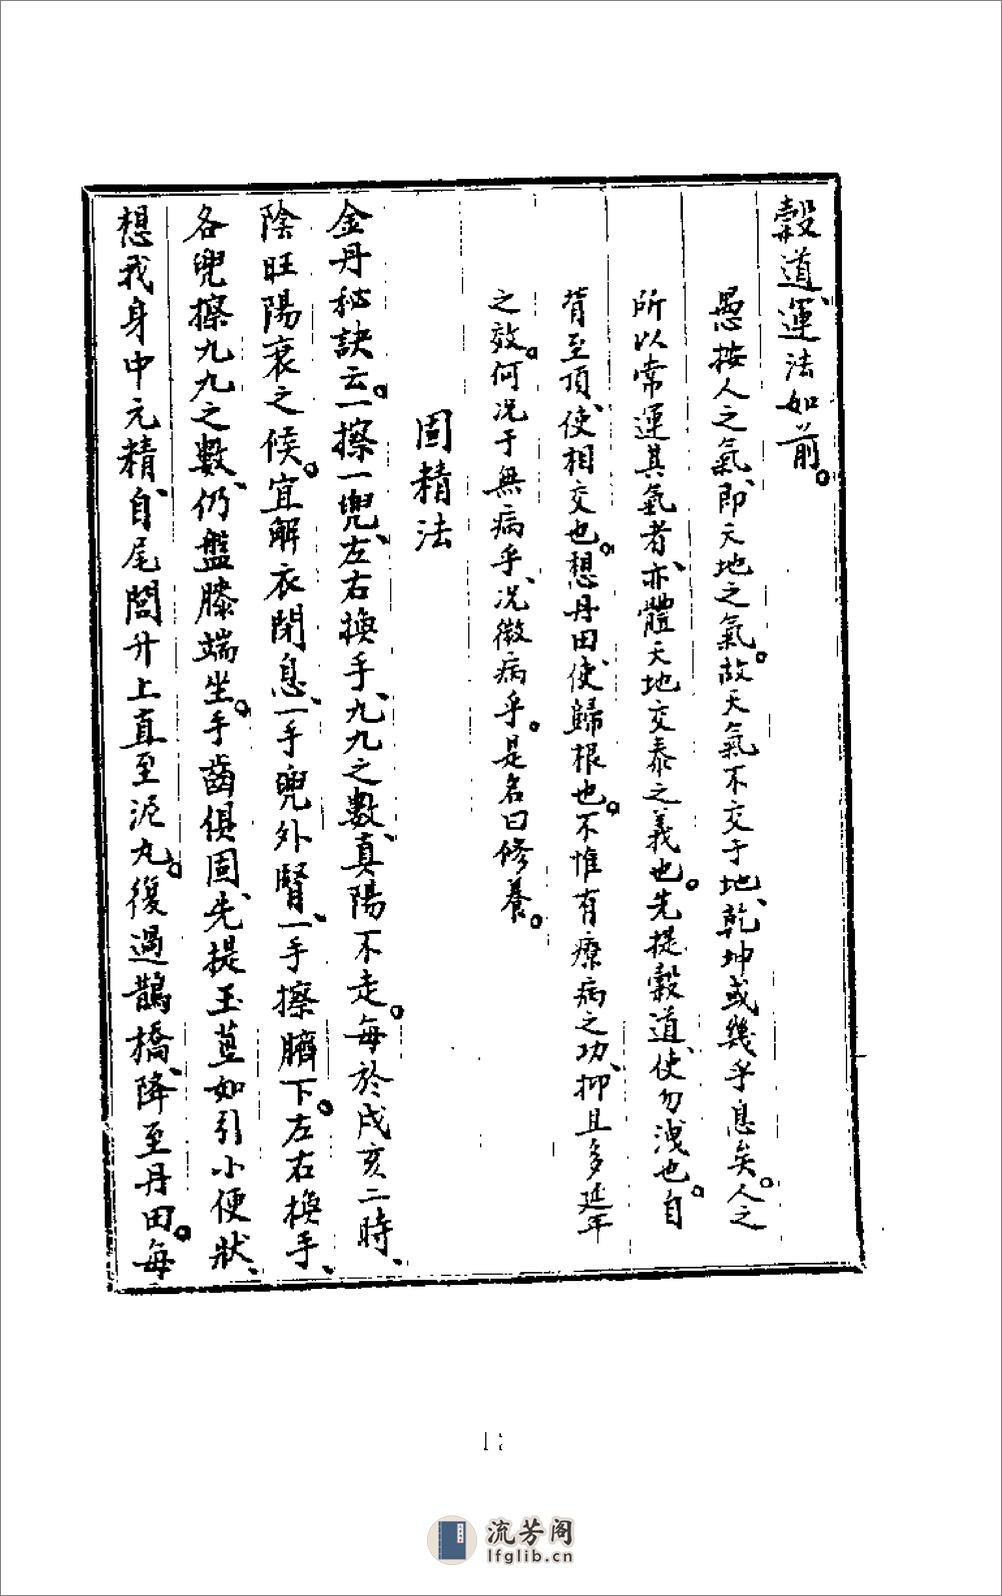 穀道、運法如前。
愚按人之氣、即天地之氣。故天氣不交于地、乾坤或幾乎息矣。人之
所以常運其氣者、亦體天地交泰之義也。先提穀道、使勿洩也。自
背至頂、使相交也。想丹田、使歸根也。不惟有療病之功、抑且多延年
之效。何况于無病乎、况微病乎。是名曰修養。
固精法
金丹秘訣云。一擦一兜、左右換手、九九之數、真陽不走。每於戌亥二時、
陰旺陽衰之候。宜解衣閉息、一手兜外腎、一手擦臍下。左右換手、
各兜擦九九之數、仍盤膝端坐。手齒俱固、先提玉莖如引小便狀、
想我身中元精、自尾閭升上直至泥丸。復過鵲橋、降至丹田。每
流芳阁
lfglib.cn